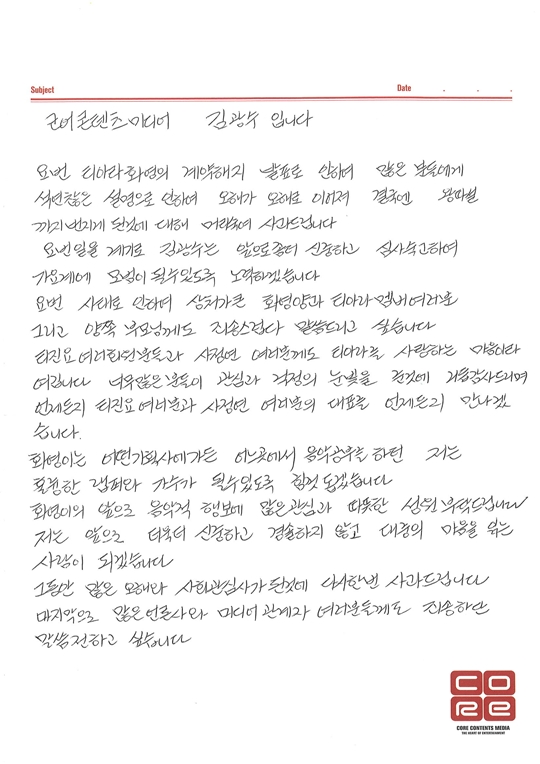 Subject
Date . . .
코어콘텐츠미디어 김광수 입니다
요번 티아라화영의 계약해지 발표로 인하여 많은 분들에게
석연찮은 설명으로 인하여 오해가 오해로 이어져 결국엔 왕따설
까지번지게 된것에 대해 머리숙여 사과드립니다
요번일을 계기로 김광수는 앞으로좀더 신중하고 심사숙고하여
가요계에 모범이 될수있도록 노력하겠습니다
요번 사태로 인하여 상처가큰 화영양과 티아라 멤버여러분
그리고 양쪽 부모님께도 죄송스럽다 말씀드리고 싶습니다
티진요 여러회원분들과 사정연 여러분께도 티아라를 사랑하는 마음이라
여깁니다 너무많은분들이 관심과 걱정의 눈빛을 준것에 거듭감사드리며
언제든지 티진요여러분과 사정연 여러분의 대표를 언제든지 만나겠
습니다.
화영이는 어떤기획사에가든 어느곳에서 음악공부를 하던 저는
훌륭한 랩퍼와 가수가 될수있도록 힘껏 돕겠습니다
화영이의 앞으로 음악적 행보에 많은관심과 따뜻한 성원 부탁드립니다
저는 앞으로 더욱더 신중하고 경솔하지 않고 대중의 마음을 읽는
사람이 되겠습니다
그동안 많은 오해와 사회관심사가된것에 다시한번 사과드립니다
마지막으로 많은언론사와 미디어 관계자 여러분들께도 죄송하단
말씀전하고 싶습니다
CO
Re
CORE CONTENTS MEDIA
THE HEART OF ENTERTAINMENT